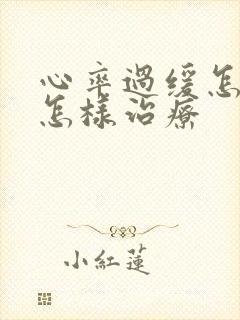 心率過緩怎
怎樣治療
小紅蓮